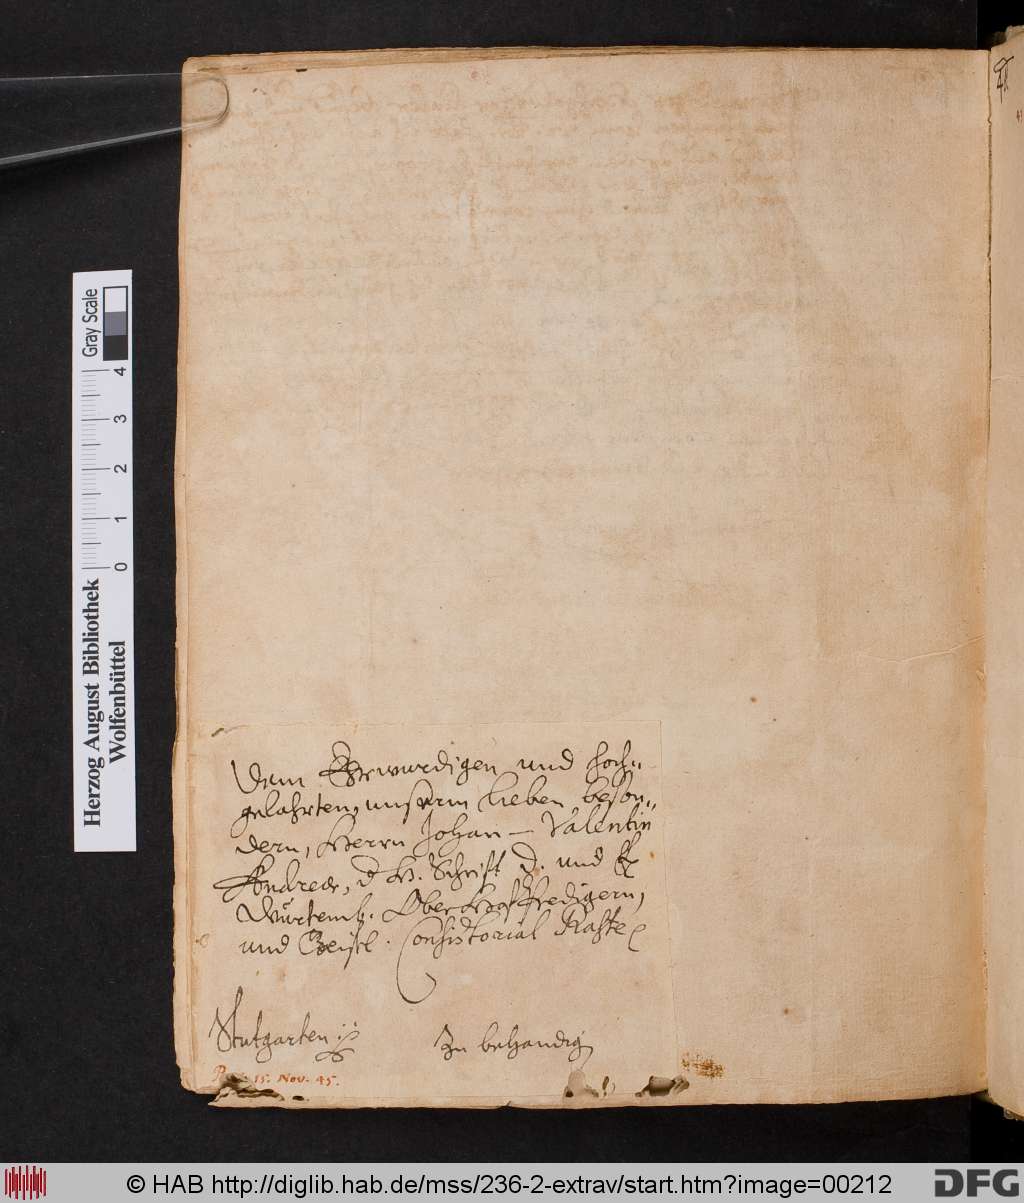 Dem Ehrwürdigen und hoch-
gelahrten, unserm lieben beson-
dern, Herrn Johan Valentin
Andreæ, d H. Schrift D. und
Würtemb. Ober Hof Predigern,
und Geistl. Consistorial Rahte
Stutgarten
Zu behändig
15. Nov. 45.
Herzog August Bibliothek
Wolfenbüttel
0 1 2 3 4
Gray Scale
© HAB http://diglib.hab.de/mss/236-2-extrav/start.htm?image=00212
DFG